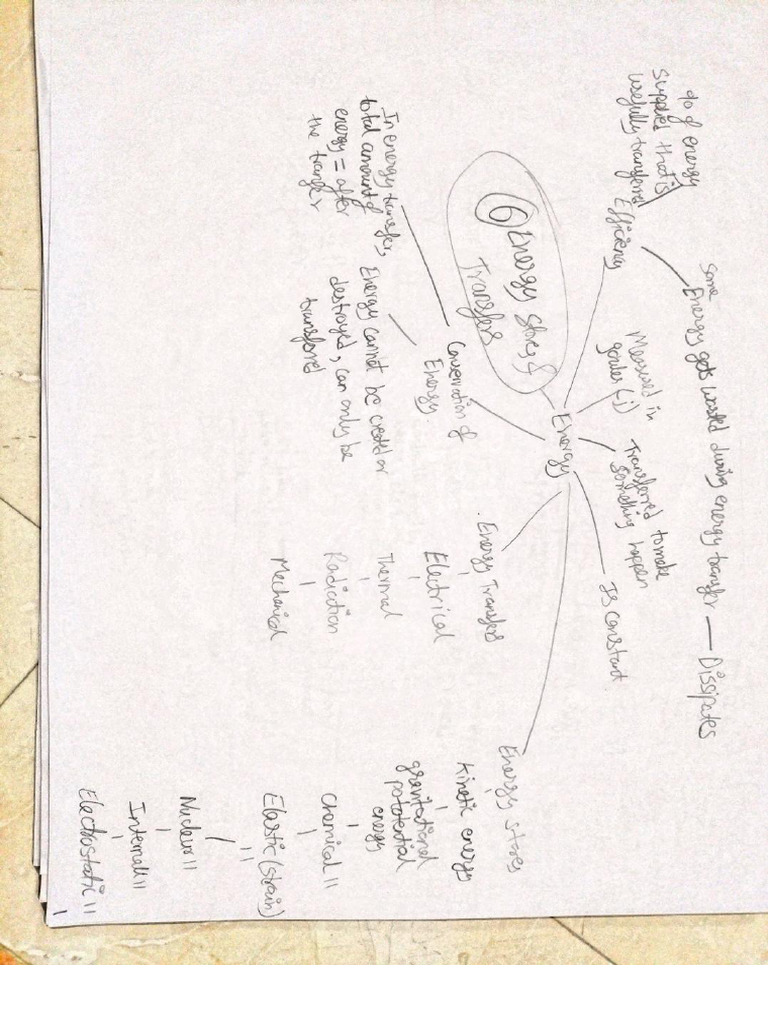 ⑥ Energy Stores &
Transfers
Energy
Efficiency
% of energy
supplied that is
usefully transferred
Some
Energy gets wasted during energy transfer — Dissipates
Measured in
(J)
Transferred to make
something happen
Is constant
Conservation of
Energy.
In energy transfer,
total amount of
energy = after
the transfer
Energy cannot be created or
destroyed, can only be
transferred
Energy Transfers
Electrical
Thermal
Radiation
Mechanical
Energy stores
Kinetic energy
gravitational
potatential
energy
Chemical "
Elastic (strain) "
Nuclear "
Internal "
Electrostatic "
1